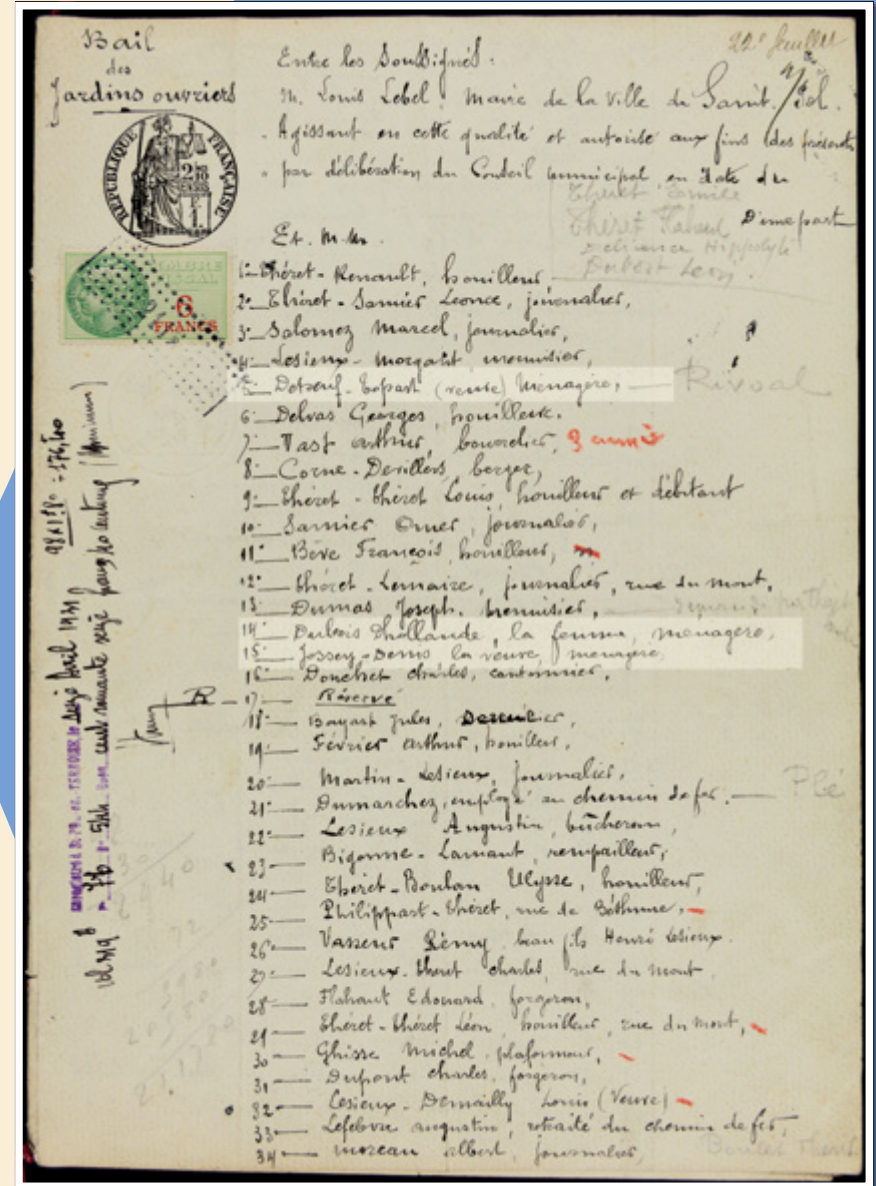 Bail
des
Jardins ouvriers
22e feuillet
Entre les Soussignés :
M. Louis Lebel, Maire de la Ville de Saint-Pol.
Agissant en cette qualité et autorisé aux fins des présentes
par délibération du Conseil municipal en date du
D'une part
Théret Emile
Théret
Hippolyte
Dubert Leon.
RÉPUBLIQUE FRANÇAISE
TIMBRE
FISCAL
6
FRANCS
Et. M.M.
1°_Théret-Renault, houilleur
2°_Théret-Sannier Leonce, journalier,
3°_Salomez Marcel, journalier,
4°_Lesieux-Morgatit, menuisier,
5°_ (veuve) Ménagère, — Rivoal
6°_Delvas Georges, houilleur.
7°_Vast arthur, bourrelier, 9
8°_Corne-Devillers, berger,
9°_Théret-théret Louis, houilleur et débitant
10°_Sannier Omer, journalier,
11°_Bève François, houilleur,
12°_théret-Lemaire, journalier, rue du mont,
13°_Dumas Joseph, menuisier,
14°_Dubois Dhollande, la femme, ménagère,
15°_ la veuve, ménagère,
16°_Douchet charles, cantonnier,
17°_Réservé
18°— Bayart Jules,
19°— Février arthur, houilleur,
20°— Martin-Lesieux, journalier,
21°— Dumarchez, employé au chemin de fer. — Plé
22°— Lesieux Augustin, bûcheron,
23— Bigonne-Lamant, rempailleur,
24— Théret-Boulan Ulysse, houilleur,
25— Philippart-théret, rue de Béthune,
26— Vasseur Rémy, beau fils Henri Lesieux.
27— Lesieux-théret charles, rue du mont
28— Flahaut Edouard, forgeron,
29— Théret-théret Léon, houilleur, rue du mont,
30— Ghisse michel, plafonneur,
31— Dupont charles, forgeron,
32— Lesieux-Demailly Louis (Veuve)
33— Lefebvre augustin, retraité du chemin de fer,
34— moreau albert, journalier,
98 x 1 80 = 176,40